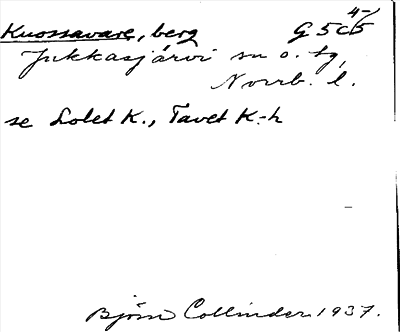 Kuossavare, berg G5c5 4-1
Jukkasjärvi sn o. tg,
Norrb. l.
se Lolet K., Tavet K.-h
Björn Collinder 1937.